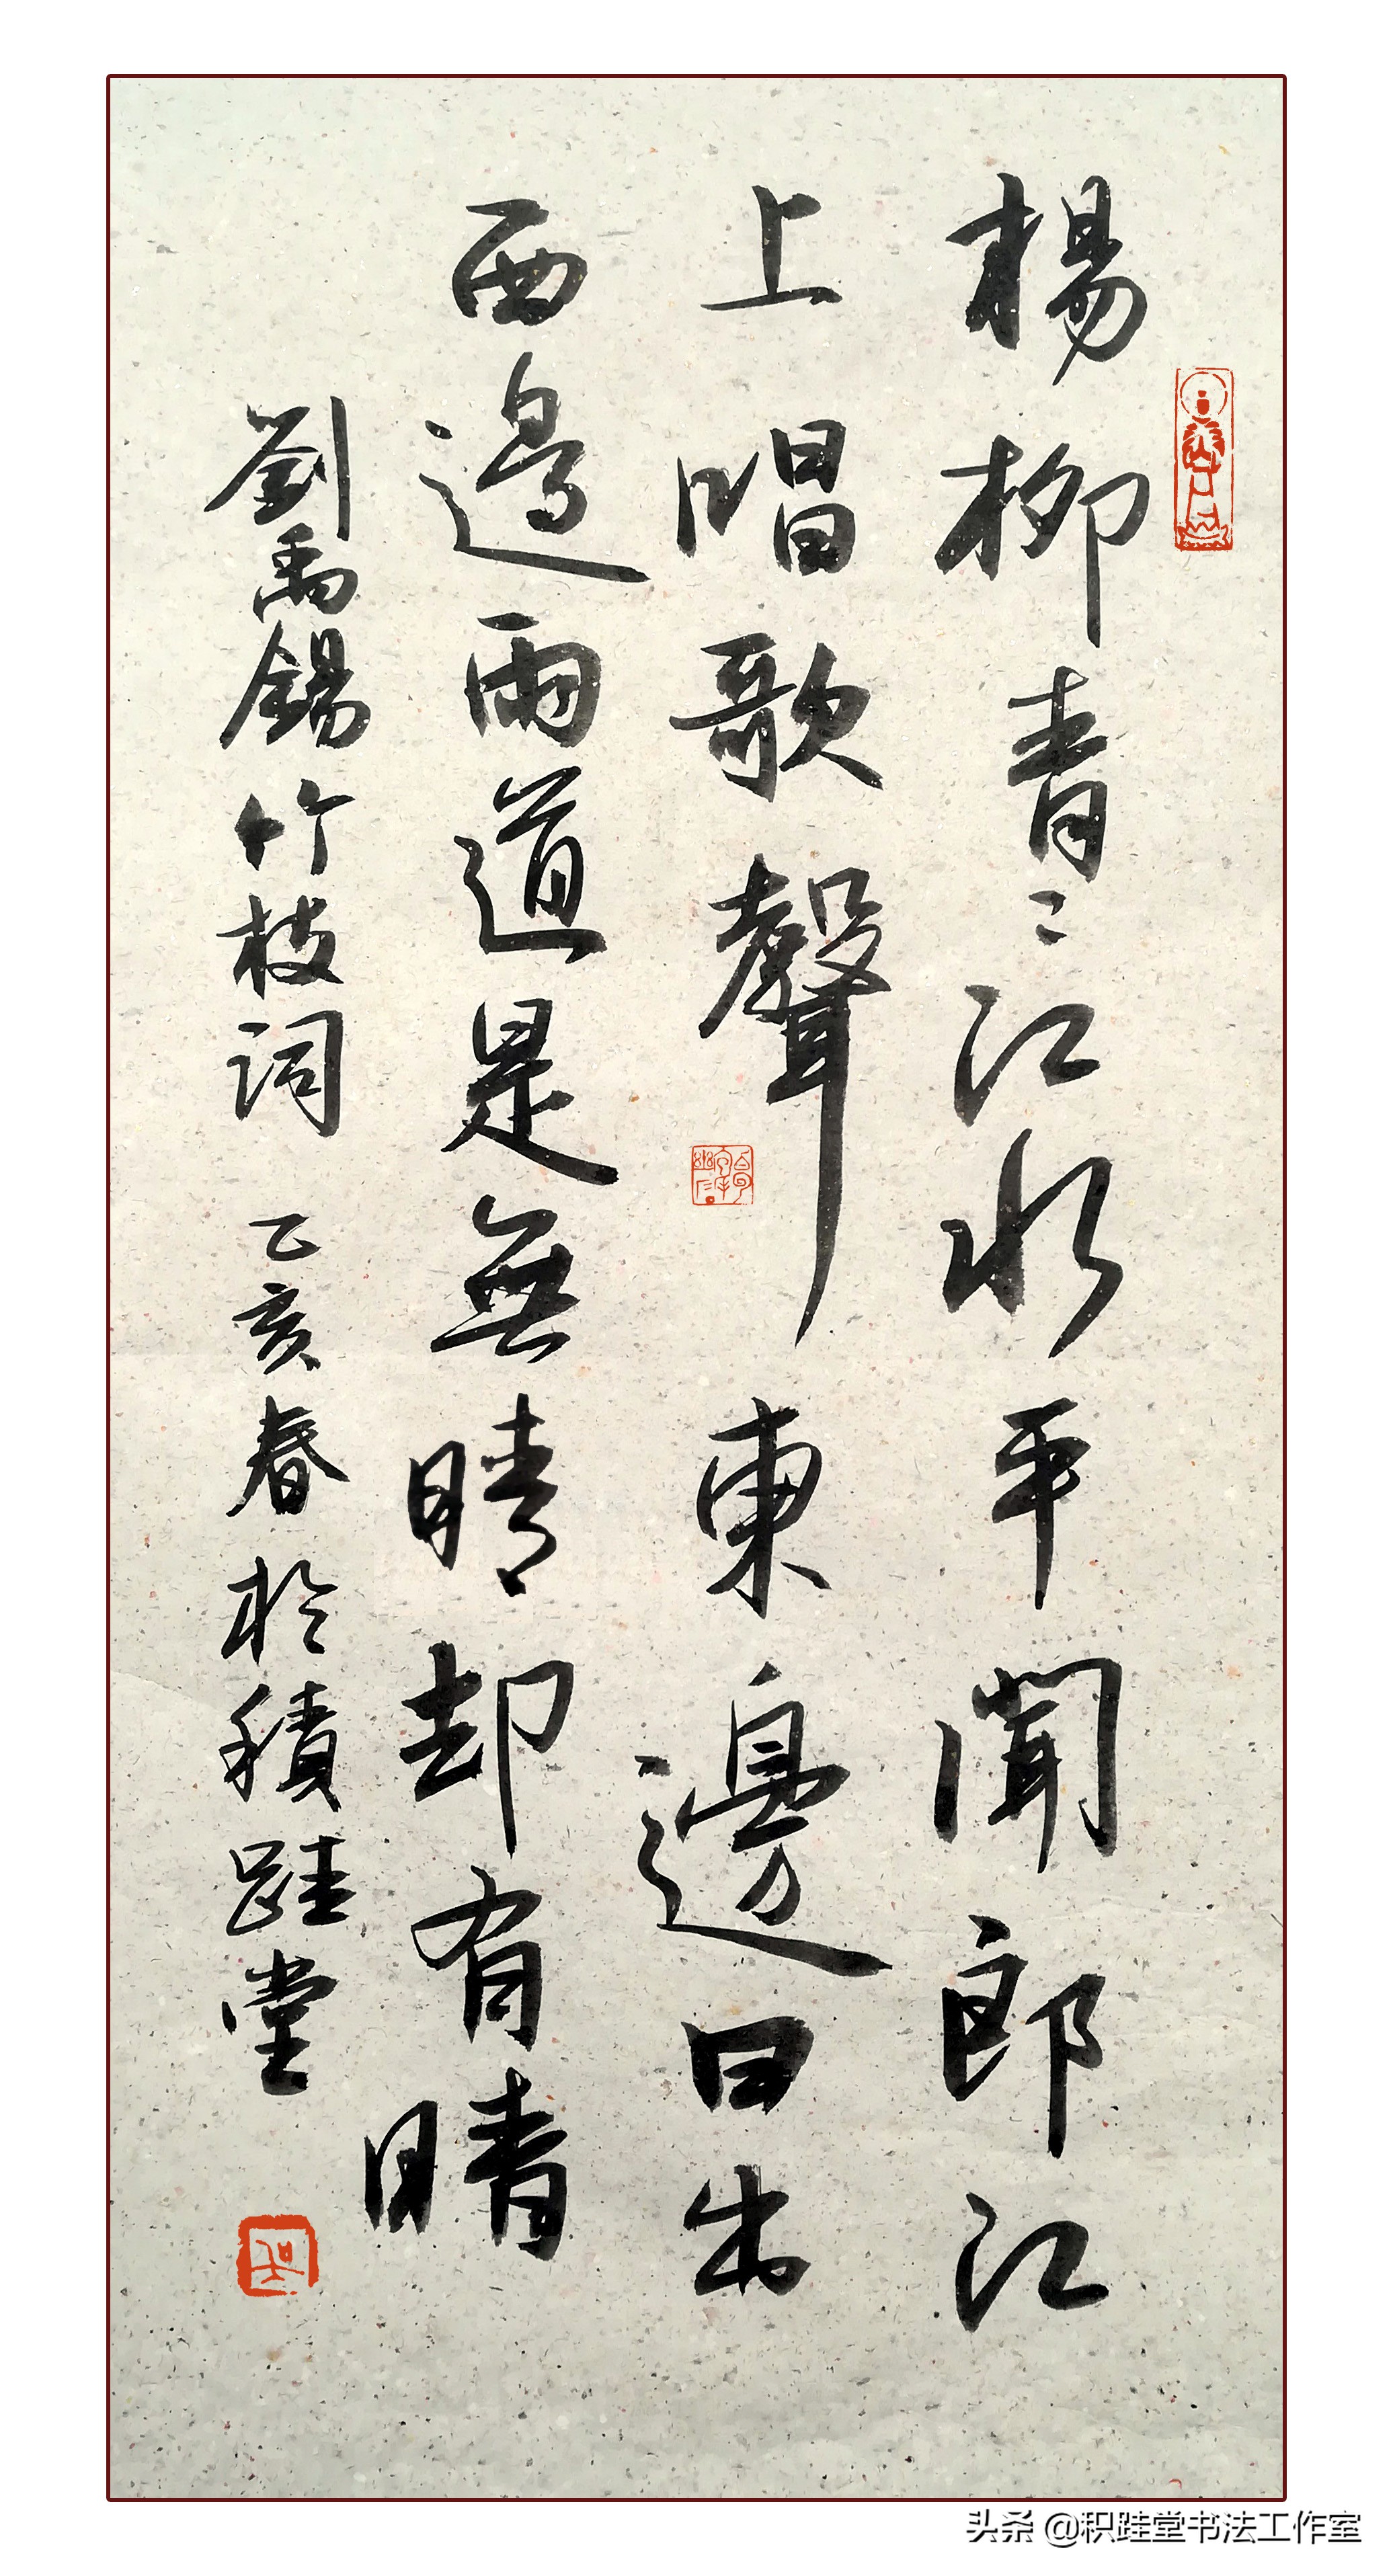 楊柳青〻江水平聞郎江
上唱歌聲東邊日出
西邊雨道是無晴却有晴
劉禹錫竹枝詞 乙亥春於積跬堂
头条 @积跬堂书法工作室